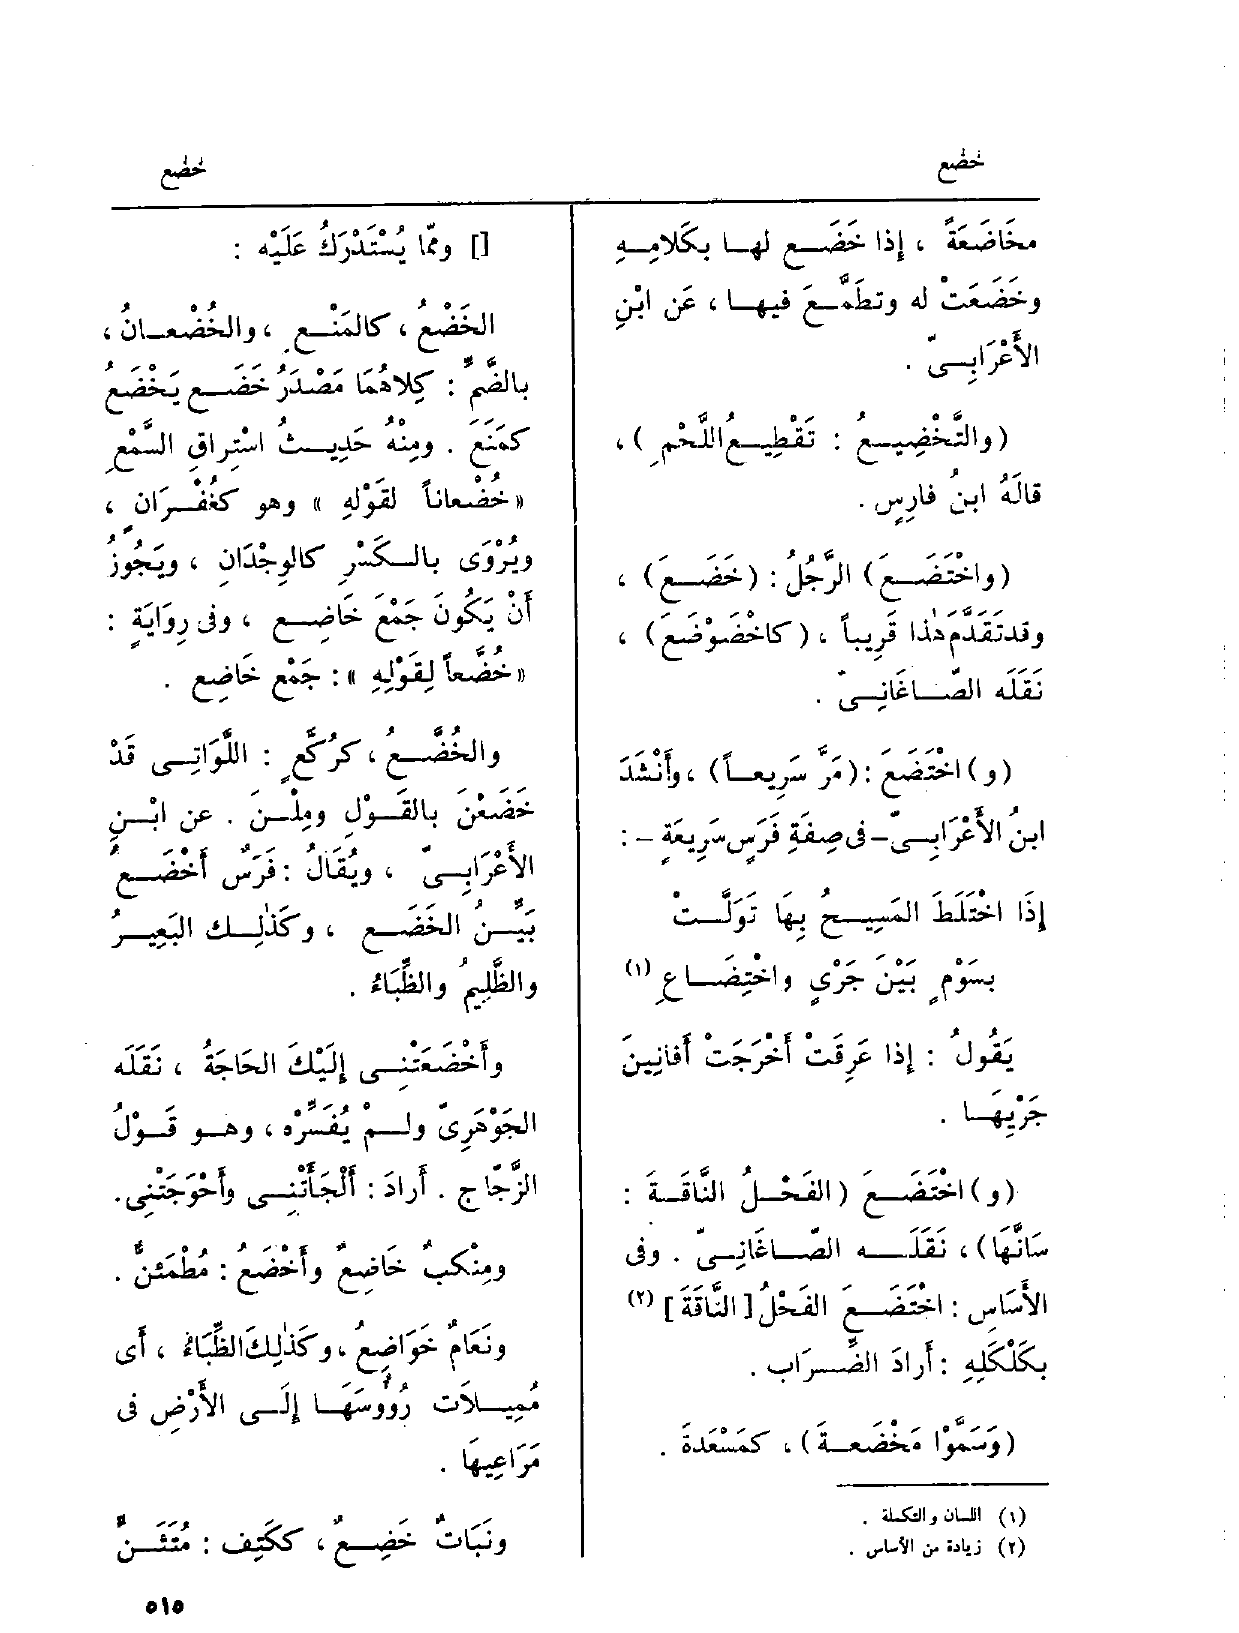 خضع
خضع
مخَاضَعَةً ، إذا خَضَـع لهـا بكَلامِـهِ
وخَضَعَتْ له وتطَمَّـعَ فيهـا ، عَن ابْنِ
الأَعْرَابِـىّ .
(والتَّخْضِيـعُ : تَقْطِيـعُ اللَّحْمِ ) ،
قالَهُ ابنُ فارِسٍ .
(واخْتَضَـعَ) الرَّجُلُ : (خَضَـعَ) ،
وقدتَقَدَّمَ هٰذا قَرِيباً ، (كاخْضَوْضَعَ) ،
نَقَلَه الصّـاغَانِـىّ .
(و) اخْتَضَعَ : (مَرَّ سَرِيعـاً) ، وأَنْشَدَ
ابنُ الأَعْرَابِـىّ – فى صِفَةِ فَرَسٍ سَرِيعَةٍ – :
إذَا اخْتَلَطَ المَسِيـحُ بِهَا تَوَلَّـتْ
بسَوْمٍ بَيْنَ جَرْىٍ واخْتِضَـاعِ (١)
يَقُولُ : إذا عَرِقَتْ أَخْرَجَتْ أَفانِينَ
جَرْيِهَـا .
(و) اخْتَضَـعَ (الفَحْـلُ النَّاقَـةَ :
سَانَّهَا) ، نَقَلَـه الصّـاغَانِـىّ . وفى
الأَسَاسِ : اخْتَضَـعَ الفَحْلُ [ النَّاقَةَ ] (٢)
بكَلْكَلِهِ : أَرادَ الضِّـرَاب .
(وَسَمَّوْا مَخْضَعـةَ) ، كمَسْعَدةَ .
(١) اللسان والتكملة .
(٢) زيادة من الأساس .
[] وممّا يُسْتَدْرَكُ عَلَيْه :
الخَضْعُ ، كالمَنْـعِ ، والخُضْعـانُ ،
بالضَّمِّ : كِلاهُمَا مَصْدَرُ خَضَـع يَخْضَعُ
كمَنَعَ . ومِنْهُ حَدِيـثُ اسْتِراقِ السَّمْعِ
« خُضْعاناً لقَوْلِهِ » وهو كغُفْـرَانٍ ،
ويُرْوَى بالـكَسْرِ كالوِجْدَانِ ، ويَجُوزُ
أَنْ يَكُونَ جَمْعَ خَاضِـعٍ ، وفى رِوَايَةٍ :
« خُضَّعاً لِقَوْلِهِ » : جَمْع خَاضِعٍ .
والخُضَّـعُ ، كرُكَّعٍ : اللَّوَاتِـى قَدْ
خَضَعْنَ بالقَـوْلِ ومِلْـنَ . عن ابْـنِ
الأَعْرَابِـىّ ، ويُقَالُ : فَرَسٌ أَخْضَـعُ
بَيِّـنُ الخَضَـعِ ، وكَذٰلِـك البَعِيـرُ
والظَّلِيمُ والظِّبَاءُ .
وأَخْضَعَتْنِـى إِلَيْكَ الحَاجَةُ ، نَقَلَه
الجَوْهَرِىّ ولـمْ يُفَسِّرْه ، وهـو قَـوْلُ
الزَّجّاجِ . أَرادَ : أَلْجَأَتْنِـى وأَحْوَجَتْنِى.
ومنْكبٌ خَاضِعٌ وأَخْضَعُ : مُطْمَئنٌّ .
ونَعَامٌ خَوَاضِعُ ، وكَذٰلِكَ الظِّبَاءُ ، أَى
مُمِيـلاَت رُؤُوسَهَـا إِلَـى الأَرْضِ فى
مَرَاعِيهَا .
ونَبَاتٌ خَضِـعٌ ، ككَتِفٍ : مُتَثَـنٍّ
٥١٥